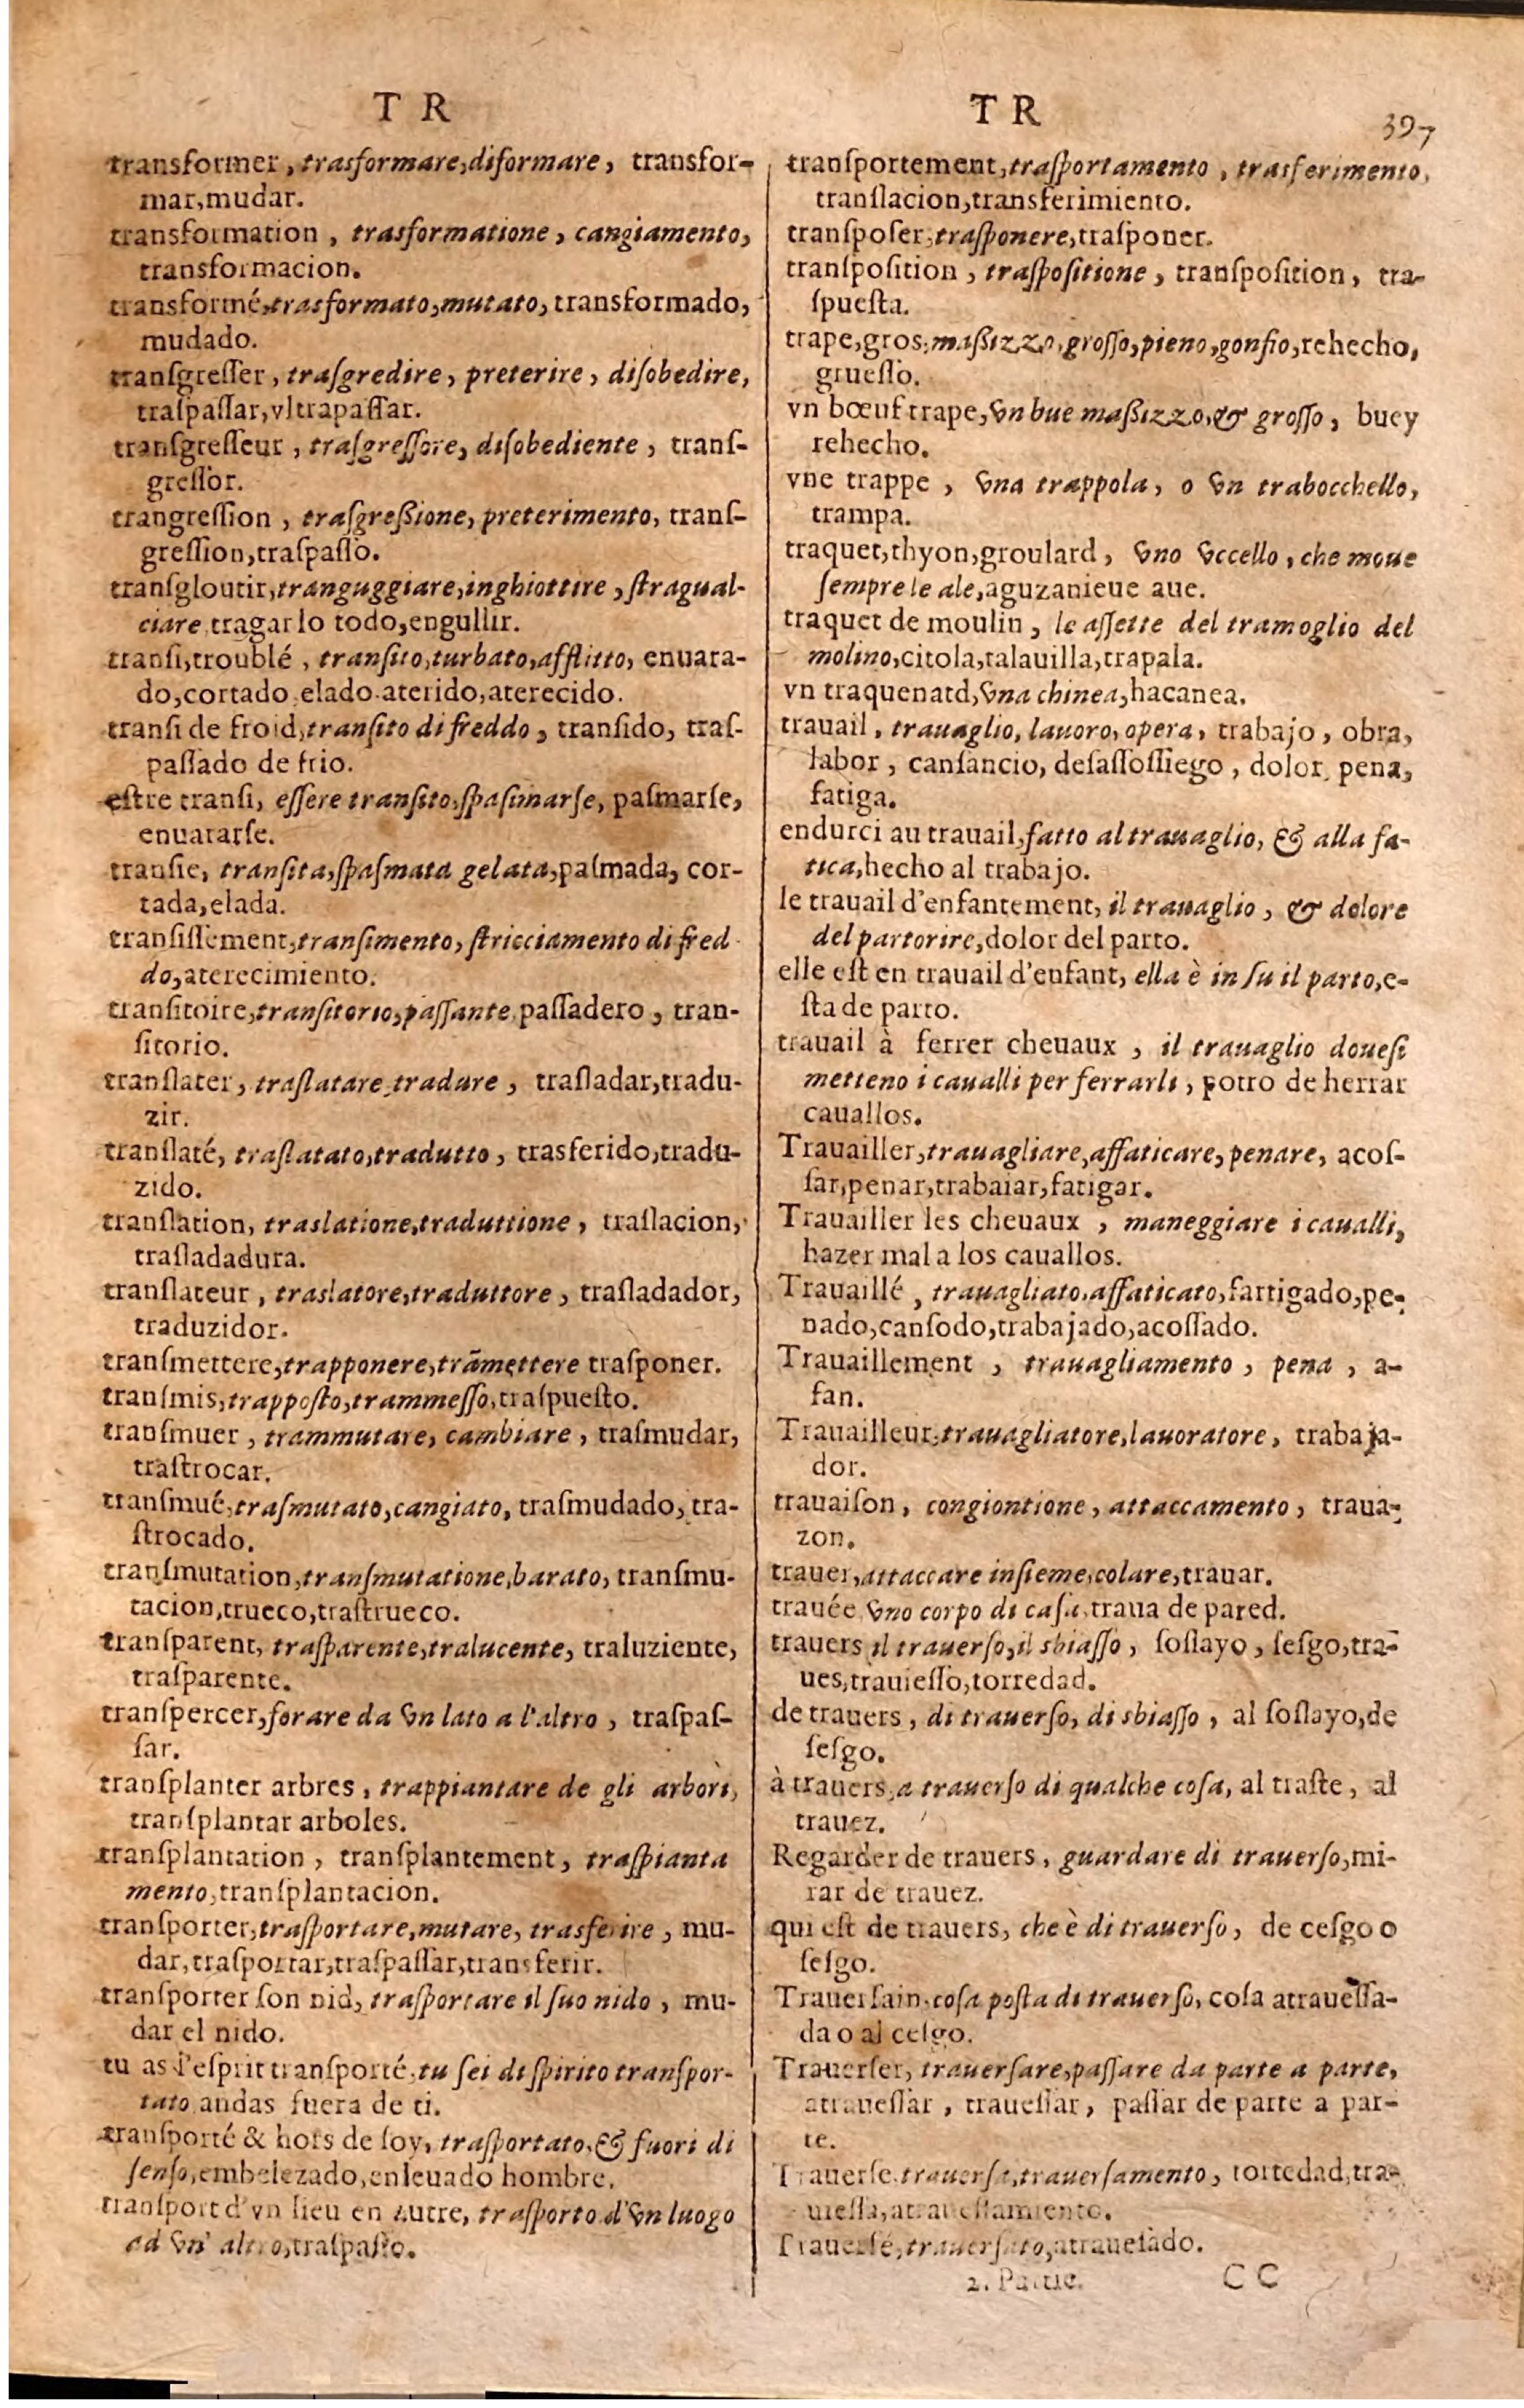 T R
transformer, trasformare, diformare, transfor-
mar, mudar.
transformation, trasformatione, cangiamento,
transformacion.
transformé, trasformato, mutato, transformado,
mudado.
tranſgreſſer, traſgredire, preterire, diſobedire,
traſpaſſar, vltrapaſſar.
tranſgreſſeur, traſgreſſore, diſobediente, tranſ-
greſſor.
trangreſſion, traſgreßione, preterimento, tranſ-
greſſion, traſpaſſo.
tranſgloutir, tranguggiare, inghiottire, ſtragual-
ciare, tragarlo todo, engullir.
tranſi, troublé, tranſito, turbato, afflitto, enuara-
do, cortado, elado, aterido, aterecido.
tranſi de froid, tranſito di freddo, tranſido, traſ-
paſſado de frio.
eſtre tranſi, eſſere tranſito, ſpaſimarſe, paſmarſe,
enuararſe.
tranſie, tranſita, ſpaſmata gelata, paſmada, cor-
tada, elada.
tranſiſſement, tranſimento, ſtricciamento di fred
do, aterecimiento.
tranſitoire, tranſitorio, paſſante, paſſadero, tran-
ſitorio.
tranſlater, traſlatare, tradure, traſladar, tradu-
zir.
tranſlaté, traſlatato, tradutto, trasferido, tradu-
zido.
tranſlation, traslatione, traduttione, traſlacion,
traſladadura.
tranſlateur, traslatore, traduttore, traſladador,
traduzidor.
tranſmettere, trapponere, trãmettere traſponer.
tranſmis, trappoſto, trammeſſo, traſpueſto.
tranſmuer, trammutare, cambiare, traſmudar,
traſtrocar.
tranſmué, traſmutato, cangiato, traſmudado, tra-
ſtrocado.
tranſmutation, tranſmutatione, barato, tranſmu-
tacion, trueco, traſtrueco.
tranſparent, traſparente, tralucente, traluziente,
traſparente.
tranſpercer, forare da vn lato a l'altro, traſpaſ-
ſar.
tranſplanter arbres, trappiantare de gli arbori,
tranſplantar arboles.
tranſplantation, tranſplantement, traſpianta
mento, tranſplantacion.
tranſporter, traſportare, mutare, trasferire, mu-
dar, traſportar, traſpaſſar, transferir.
tranſporter ſon nid, traſportare il ſuo nido, mu-
dar el nido.
tu as l'eſprit tranſporté, tu ſei di ſpirito tranſpor-
tato, andas fuera de ti.
tranſporté & hors de ſoy, traſportato, & fuori di
ſenſo, embelezado, enleuado hombre.
tranſport d'vn lieu en autre, traſporto d'vn luogo
ad vn' altro, traſpaſſo.
T R
397
tranſportement, traſportamento, trasferimento,
tranſlacion, transferimiento.
tranſpoſer, traſponere, traſponer.
tranſpoſition, traſpoſitione, tranſpoſition, tra-
ſpueſta.
trape, gros, maßizzo, groſſo, pieno, gonfio, rehecho,
grueſſo.
vn bœuf trape, vn bue maßizzo, & groſſo, buey
rehecho.
vne trappe, vna trappola, o vn trabocchello,
trampa.
traquet, thyon, groulard, vno vccello, che moue
ſempre le ale, aguzanieue aue.
traquet de moulin, le aſſette del tramoglio del
molino, citola, talauilla, trapala.
vn traquenatd, vna chinea, hacanea.
trauail, trauaglio, lauoro, opera, trabajo, obra,
labor, canſancio, deſaſſoſſiego, dolor, pena,
fatiga.
endurci au trauail, fatto al trauaglio, & alla fa-
tica, hecho al trabajo.
le trauail d'enfantement, il trauaglio, & dolore
del partorire, dolor del parto.
elle eſt en trauail d'enfant, ella è in ſu il parto, e-
ſta de parto.
trauail à ferrer cheuaux, il trauaglio doueſi
metteno i caualli per ferrarli, potro de herrar
cauallos.
Trauailler, trauagliare, affaticare, penare, acoſ-
ſar, penar, trabaiar, fatigar.
Trauailler les cheuaux, maneggiare i caualli,
hazer mal a los cauallos.
Trauaillé, trauagliato, affaticato, fattigado, pe-
nado, canſodo, trabajado, acoſſado.
Trauaillement, trauagliamento, pena, a-
fan.
Trauailleur, trauagliatore, lauoratore, trabaja-
dor.
trauaiſon, congiontione, attaccamento, traua-
zon.
trauer, attaccare inſieme, colare, trauar.
trauée, vno corpo di caſa, traua de pared.
trauers, il trauerſo, il sbiaſſo, ſoſlayo, ſeſgo, tra-
ues, trauieſſo, torredad.
de trauers, di trauerſo, di sbiaſſo, al ſoſlayo, de
ſeſgo.
à trauers, a trauerſo di qualche coſa, al traſte, al
trauez.
Regarder de trauers, guardare di trauerſo, mi-
rar de trauez.
qui eſt de trauers, che è di trauerſo, de ceſgo o
ſeſgo.
Trauerſain, coſa poſta di trauerſo, coſa atraueſſa-
da o al ceſgo.
Trauerſer, trauerſare, paſſare da parte a parte,
atraueſſar, traueſſar, paſſar de parte a par-
te.
Trauerſe, trauerſa, trauerſamento, tortedad, tra-
uieſſa, atraueſſamiento.
Trauerſé, trauerſato, atraueſado.
2. Partie. CC